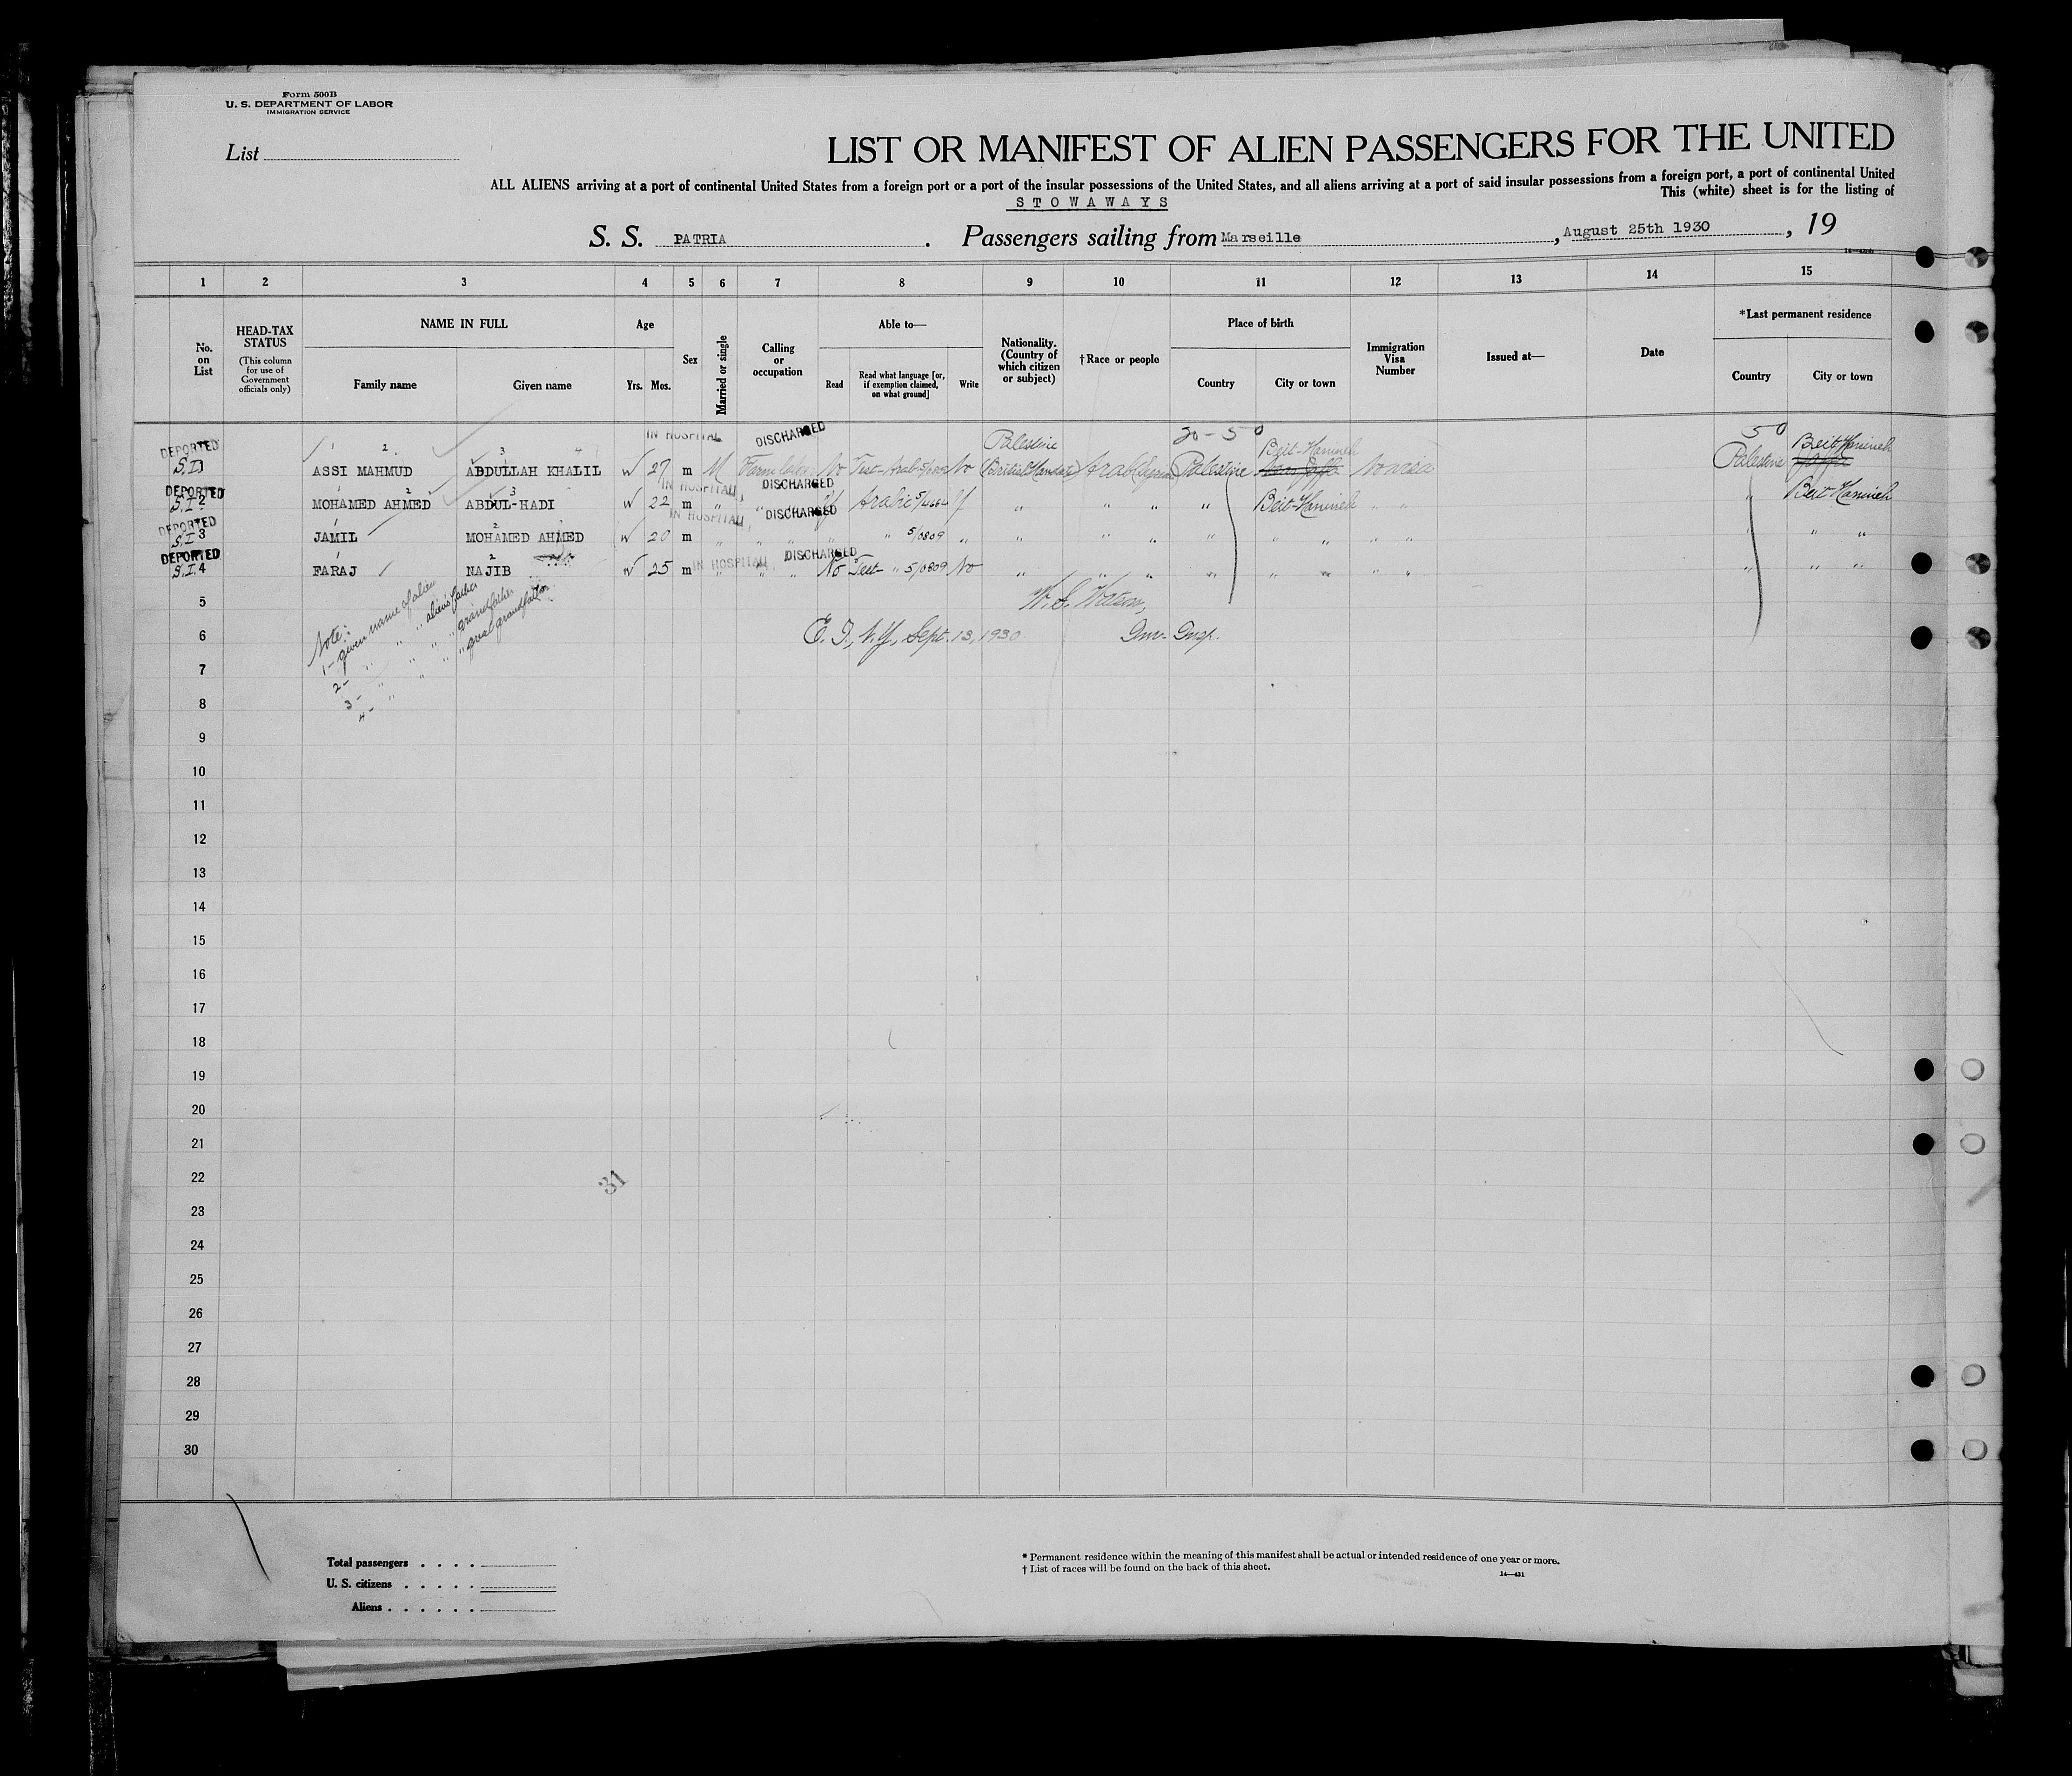 Form 500B
U. S. DEPARTMENT OF LABOR
IMMIGRATION SERVICE
List
LIST OR MANIFEST OF ALIEN PASSENGERS FOR THE UNITED
ALL ALIENS arriving at a port of continental United States from a foreign port or a port of the insular possessions of the United States, and all aliens arriving at a port of said insular possessions from a foreign port, a port of continental United
This (white) sheet is for the listing of
STOWAWAYS
S. S. PATRIA . Passengers sailing from Marseille , August 25th 1930 , 19
1 2 3 4 5 6 7 8 9 10 11 12 13 14 15
No. on List
HEAD-TAX STATUS
(This column for use of Government officials only)
NAME IN FULL
Family name Given name
Age
Yrs. Mos.
Sex
Married or single
Calling or occupation
Able to—
Read
Read what language [or, if exemption claimed, on what ground]
Write
Nationality. (Country of which citizen or subject)
†Race or people
Place of birth
Country City or town
Immigration Visa Number
Issued at—
Date
*Last permanent residence
Country City or town
IN HOSPITAL DISCHARGED 30-50 50
DEPORTED Palestine Beit-Hanineh Beit-Hanineh
S.I. 1 ASSI MAHMUD ABDULLAH KHALIL 27 m M Farm labor No Test-Arab No (British Mandate) Arab (Syrian) Palestine No visa Palestine
DEPORTED IN HOSPITAL DISCHARGED
S.I. 2 MOHAMED AHMED ABDUL-HADI 22 m " " " Arabic " " " " Beit-Hanineh " " " Beit-Hanineh
DEPORTED IN HOSPITAL DISCHARGED
S.I. 3 JAMIL MOHAMED AHMED 20 m " " " " 5/0809 " " " " " " " " " " " "
DEPORTED IN HOSPITAL DISCHARGED
S.I. 4 FARAJ NAJIB 25 m " " " No Test- " 5/0809 No " " " " " " " " " " "
5 W. S. Watson,
6 E. I., N.Y., Sept. 13, 1930 Imm. Insp.
Note:
1- given name of alien
2- " " " alien's father
3- " " " grandfather
4- " " " great grandfather
7
8
9
10
11
12
13
14
15
16
17
18
19
20
21
22
31
23
24
25
26
27
28
29
30
Total passengers
U. S. citizens
Aliens
* Permanent residence within the meaning of this manifest shall be actual or intended residence of one year or more.
† List of races will be found on the back of this sheet.
14—431